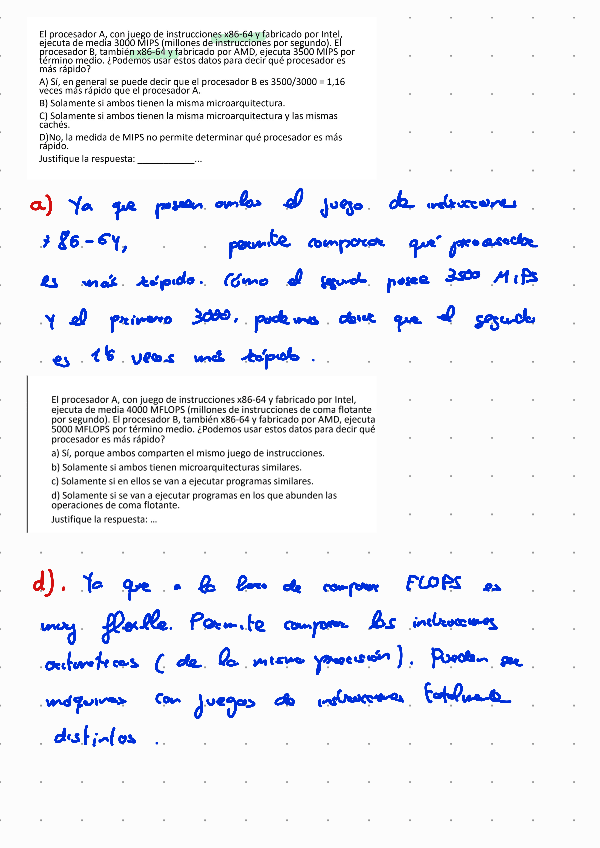 El procesador A, con juego de instrucciones x86-64 y fabricado por Intel,
ejecuta de media 3000 MIPS (millones de instrucciones por segundo). El
procesador B, también x86-64 y fabricado por AMD, ejecuta 3500 MIPS por
término medio. ¿Podemos usar estos datos para decir qué procesador es
más rápido?
A) Sí, en general se puede decir que el procesador B es 3500/3000 = 1,16
veces más rápido que el procesador A.
B) Solamente si ambos tienen la misma microarquitectura.
C) Solamente si ambos tienen la misma microarquitectura y las mismas
cachés.
D)No, la medida de MIPS no permite determinar qué procesador es más
rápido.
Justifique la respuesta: ___________...
a) Ya que poseen ambos el juego de instrucciones
x86-64, permite comparar qué procesador
es más rápido. Cómo el segundo posee 3500 MIPS
y el primero 3000, podemos decir que el segundo
es 16 veces más rápido.
El procesador A, con juego de instrucciones x86-64 y fabricado por Intel,
ejecuta de media 4000 MFLOPS (millones de instrucciones de coma flotante
por segundo). El procesador B, también x86-64 y fabricado por AMD, ejecuta
5000 MFLOPS por término medio. ¿Podemos usar estos datos para decir qué
procesador es más rápido?
a) Sí, porque ambos comparten el mismo juego de instrucciones.
b) Solamente si ambos tienen microarquitecturas similares.
c) Solamente si en ellos se van a ejecutar programas similares.
d) Solamente si se van a ejecutar programas en los que abunden las
operaciones de coma flotante.
Justifique la respuesta: ...
d). Ya que a la hora de comparar FLOPS es
muy flexible. Permite comparar las instrucciones
aritmeticas (de la misma precisión). Pueden ser
máquinas con juegos de instrucciones totalmente
distintos.